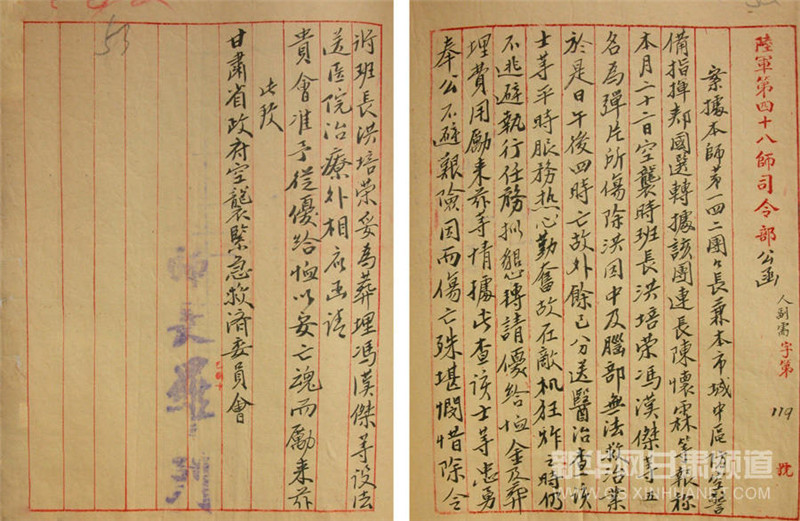 陸軍第四十八師司令部公函
人副需字第119號
案據本師第一四二團團長兼本市城中區防空警
備指揮鄭國選轉據該團連長陳懷霖等報稱
本月二十二日空襲時班長洪培荣馮漢傑等五
名為彈片所傷除洪因中及腦部無法救治業
於是日午後四時亡故外餘已分送醫治查該
士等平時服務热心勤奮故在敵机狂炸之時仍
不逃避執行任務拟懇轉請優給恤金及葬
埋費用勵来兹等情據此查該士等忠勇
奉公不避艱險因而傷亡殊堪憫惜除令
将班長洪培荣妥為葬埋馮漢傑等设法
送医院治療外相應函请
貴會准予從優給恤以安亡魂而勵来兹
此致
甘肅省政府空襲緊急救济委員會
師長羅
53
新华网甘肃频道
GS.XINHUANET.COM